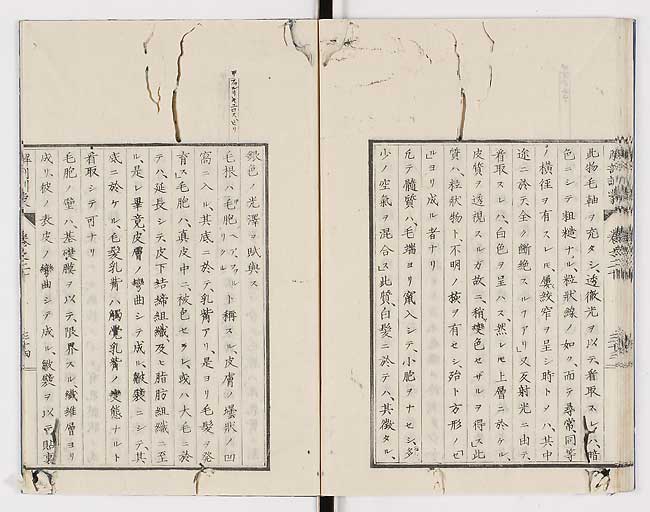 此物毛軸ヲ充タシ、透徹光ヲ以テ看取スレハ、暗
色ニシテ粗糙ナル、粒狀線ノ如ク、而テ尋常同等
ノ横徑ヲ有スレ𪜈、屢絞窄ヲ呈シ時トノハ、其中
途ニ於テ全ク斷絶スルヿアリ」又反射光ニ由テ、
看取スレハ、白色ヲ呈ハス、然レ𪜈上層ニ於ケル、
皮質ヲ透視スルカ故ニ、稍變色セザルヲ得ス」此
質ハ粒狀物ト、不明ノ核ヲ有セシ殆ト方形ノ
ヨリ成ル者ナリ
凡テ髓質ハ、毛端ヨリ竄入シテ、小胞ヲナセシ、多
少ノ空氣ヲ混合ス此質、白髮ニ於テハ、其徴タル、
銀色ノ光澤ヲ賦與ス
毛根ハ毛胞ト稱スル皮膚ノ壜狀ノ凹
窩ニ入ル、其底ニ於テ、乳觜アリ、是ヨリ毛髮ヲ發
育ス」毛胞ハ、眞皮中ニ、被包セラレ、或ハ大毛ニ於
テハ、延長シテ、皮下結締組織、及ヒ脂肪組織ニ至
ル、是レ畢竟、皮膚ノ彎曲シテ成ル、皺襞ニシテ、其
底ニ於ケル、毛髮乳觜ハ觸覺乳觜ノ變態ナルト
看取シテ可ナリ
毛胞ノ壁ハ、基礎膜ヲ以テ、限界スル纖維層ヨリ
成リ、彼ノ表皮ノ彎曲シテ成ル、皺襞ヲ以テ貼裏